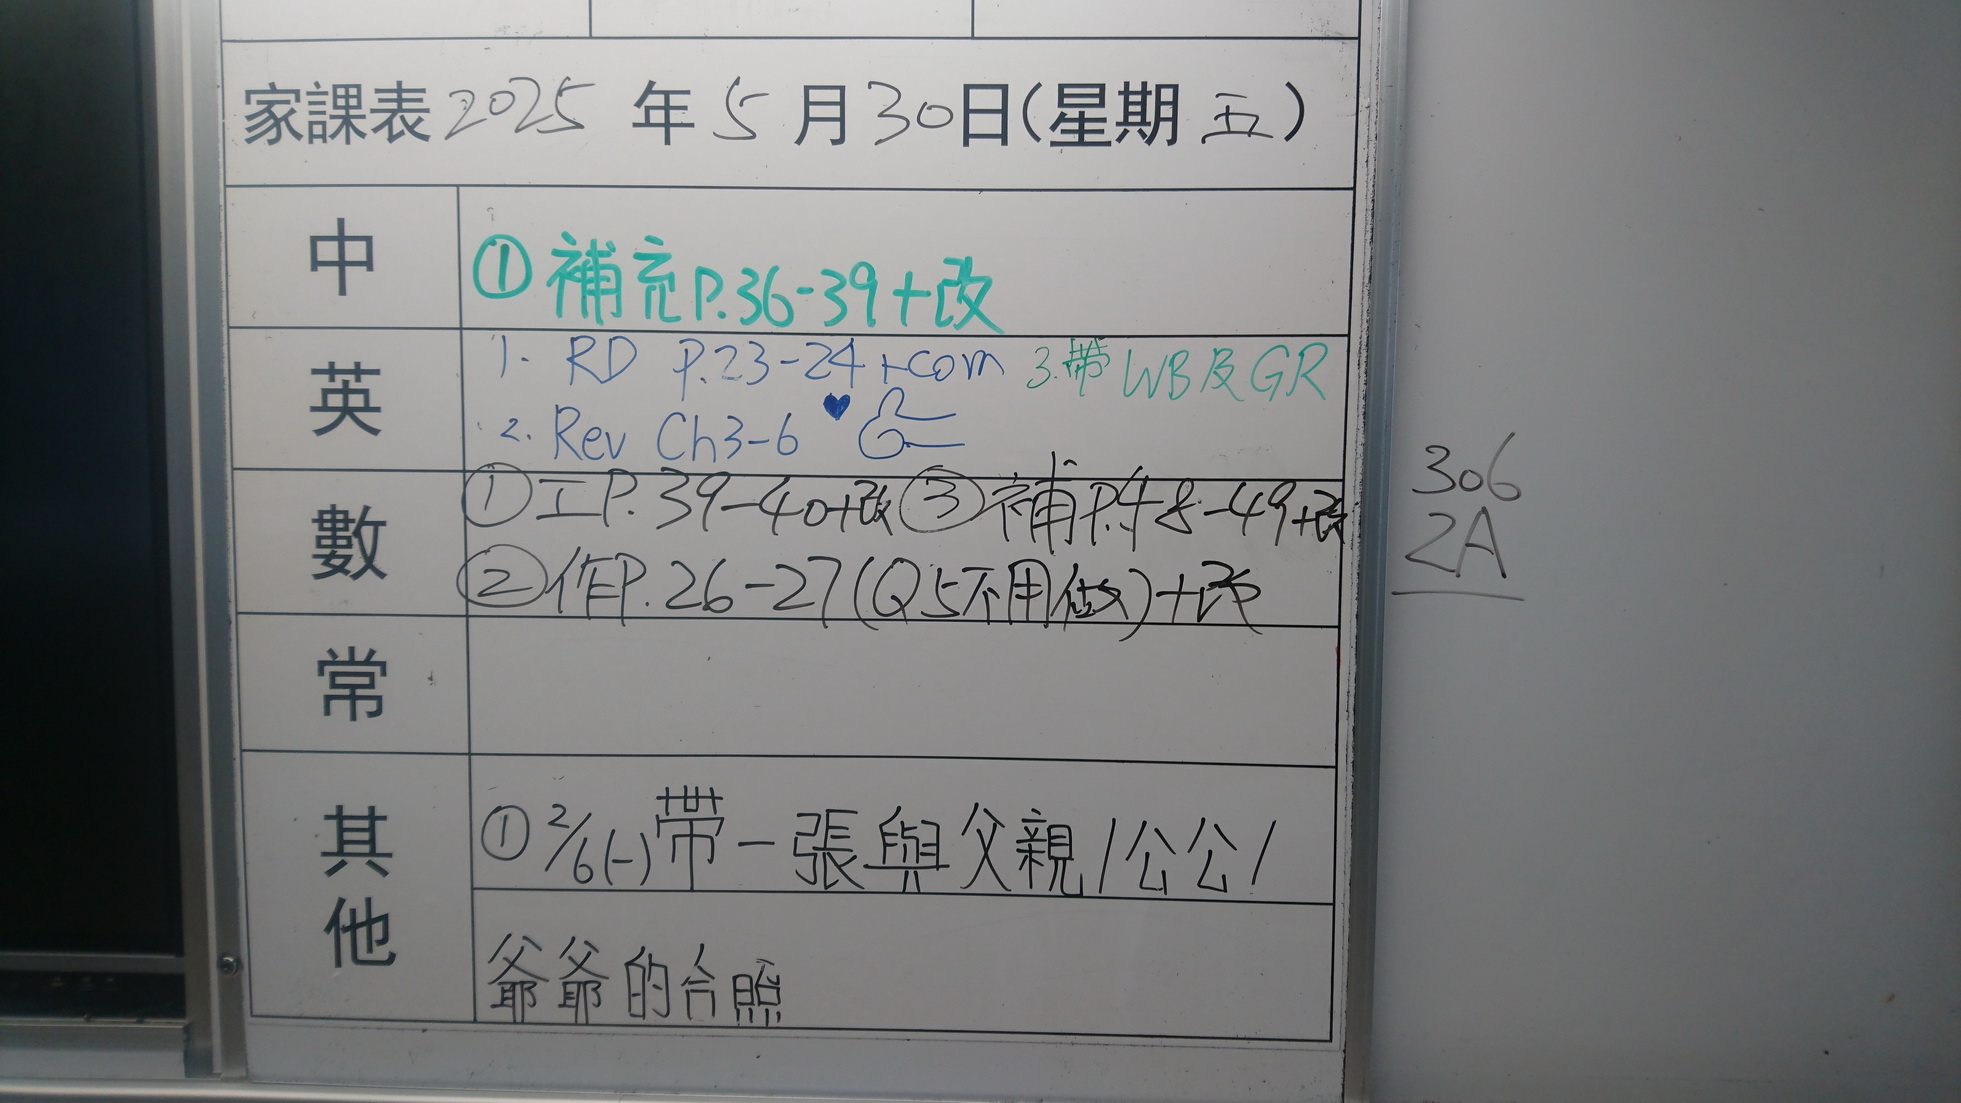 家課表 2025 年 5 月 30 日(星期 五)
中
① 補充 P.36-39+改
英
1. RD P.23-24+com 3.帶 WB及GR
2. Rev Ch3-6
數
① 工P.39-40+改 ③ 補P.48-49+改
② 作P.26-27(Q5不用做)+改
常
其他
① 2/6(一)帶一張與父親/公公/
爺爺的合照
306
2A